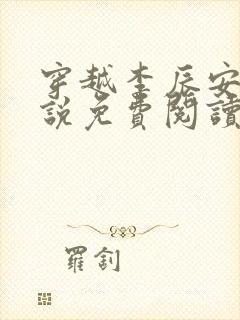 穿越李辰安
說免費閱讀
羅劊